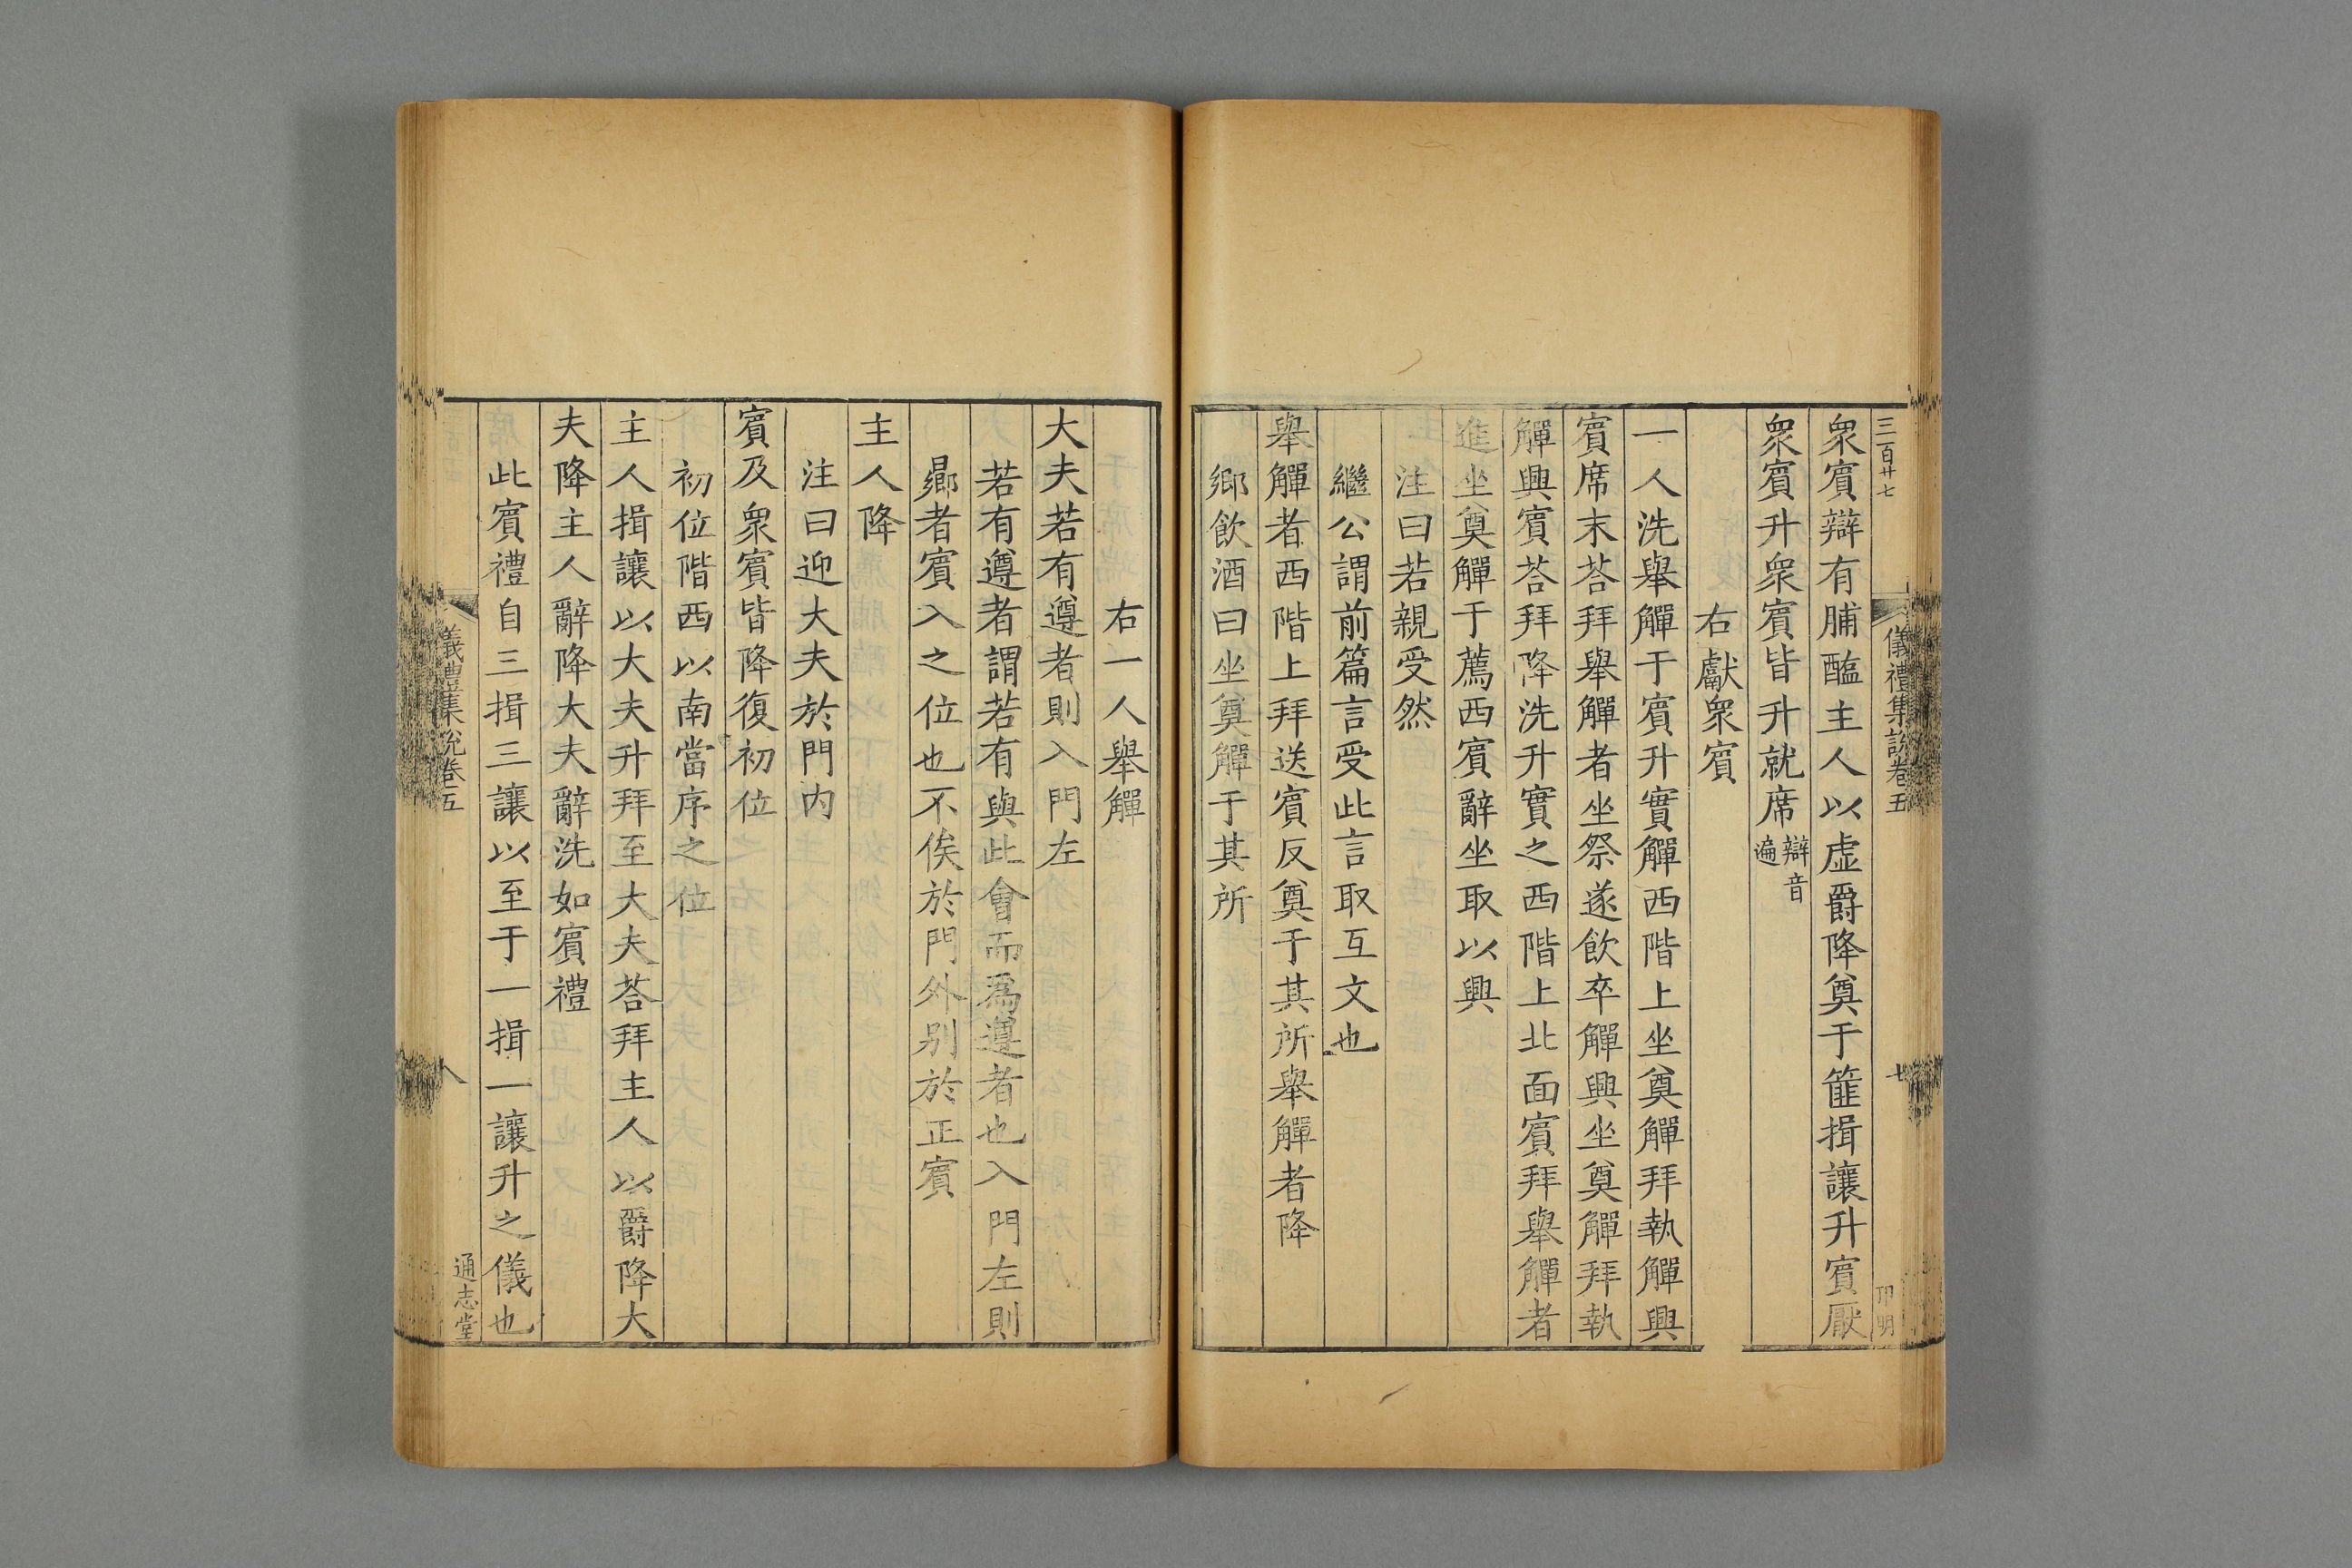 三百廿七
儀禮集說卷五
七
卭明
衆賓辯有脯醢主人以虛爵降奠于篚揖讓升賓厭
衆賓升衆賓皆升就席辯音遍
右獻衆賓
一人洗舉觶于賓升實觶西階上坐奠觶拜執觶興
賓席末荅拜舉觶者坐祭遂飲卒觶興坐奠觶拜執
觶興賓荅拜降洗升實之西階上北面賓拜舉觶者
進坐奠觶于薦西賓辭坐取以興
注曰若親受然
繼公謂前篇言受此言取互文也
舉觶者西階上拜送賓反奠于其所舉觶者降
鄉飲酒曰坐奠觶于其所
右一人舉觶
大夫若有遵者則入門左
若有遵者謂若有與此會而爲遵者也入門左則
曏者賓入之位也不俟於門外别於正賓
主人降
注曰迎大夫於門内
賓及衆賓皆降復初位
初位階西以南當序之位
主人揖讓以大夫升拜至大夫荅拜主人以爵降大
夫降主人辭降大夫辭洗如賓禮
此賓禮自三揖三讓以至于一揖一讓升之儀也
儀禮集說卷五
八
通志堂